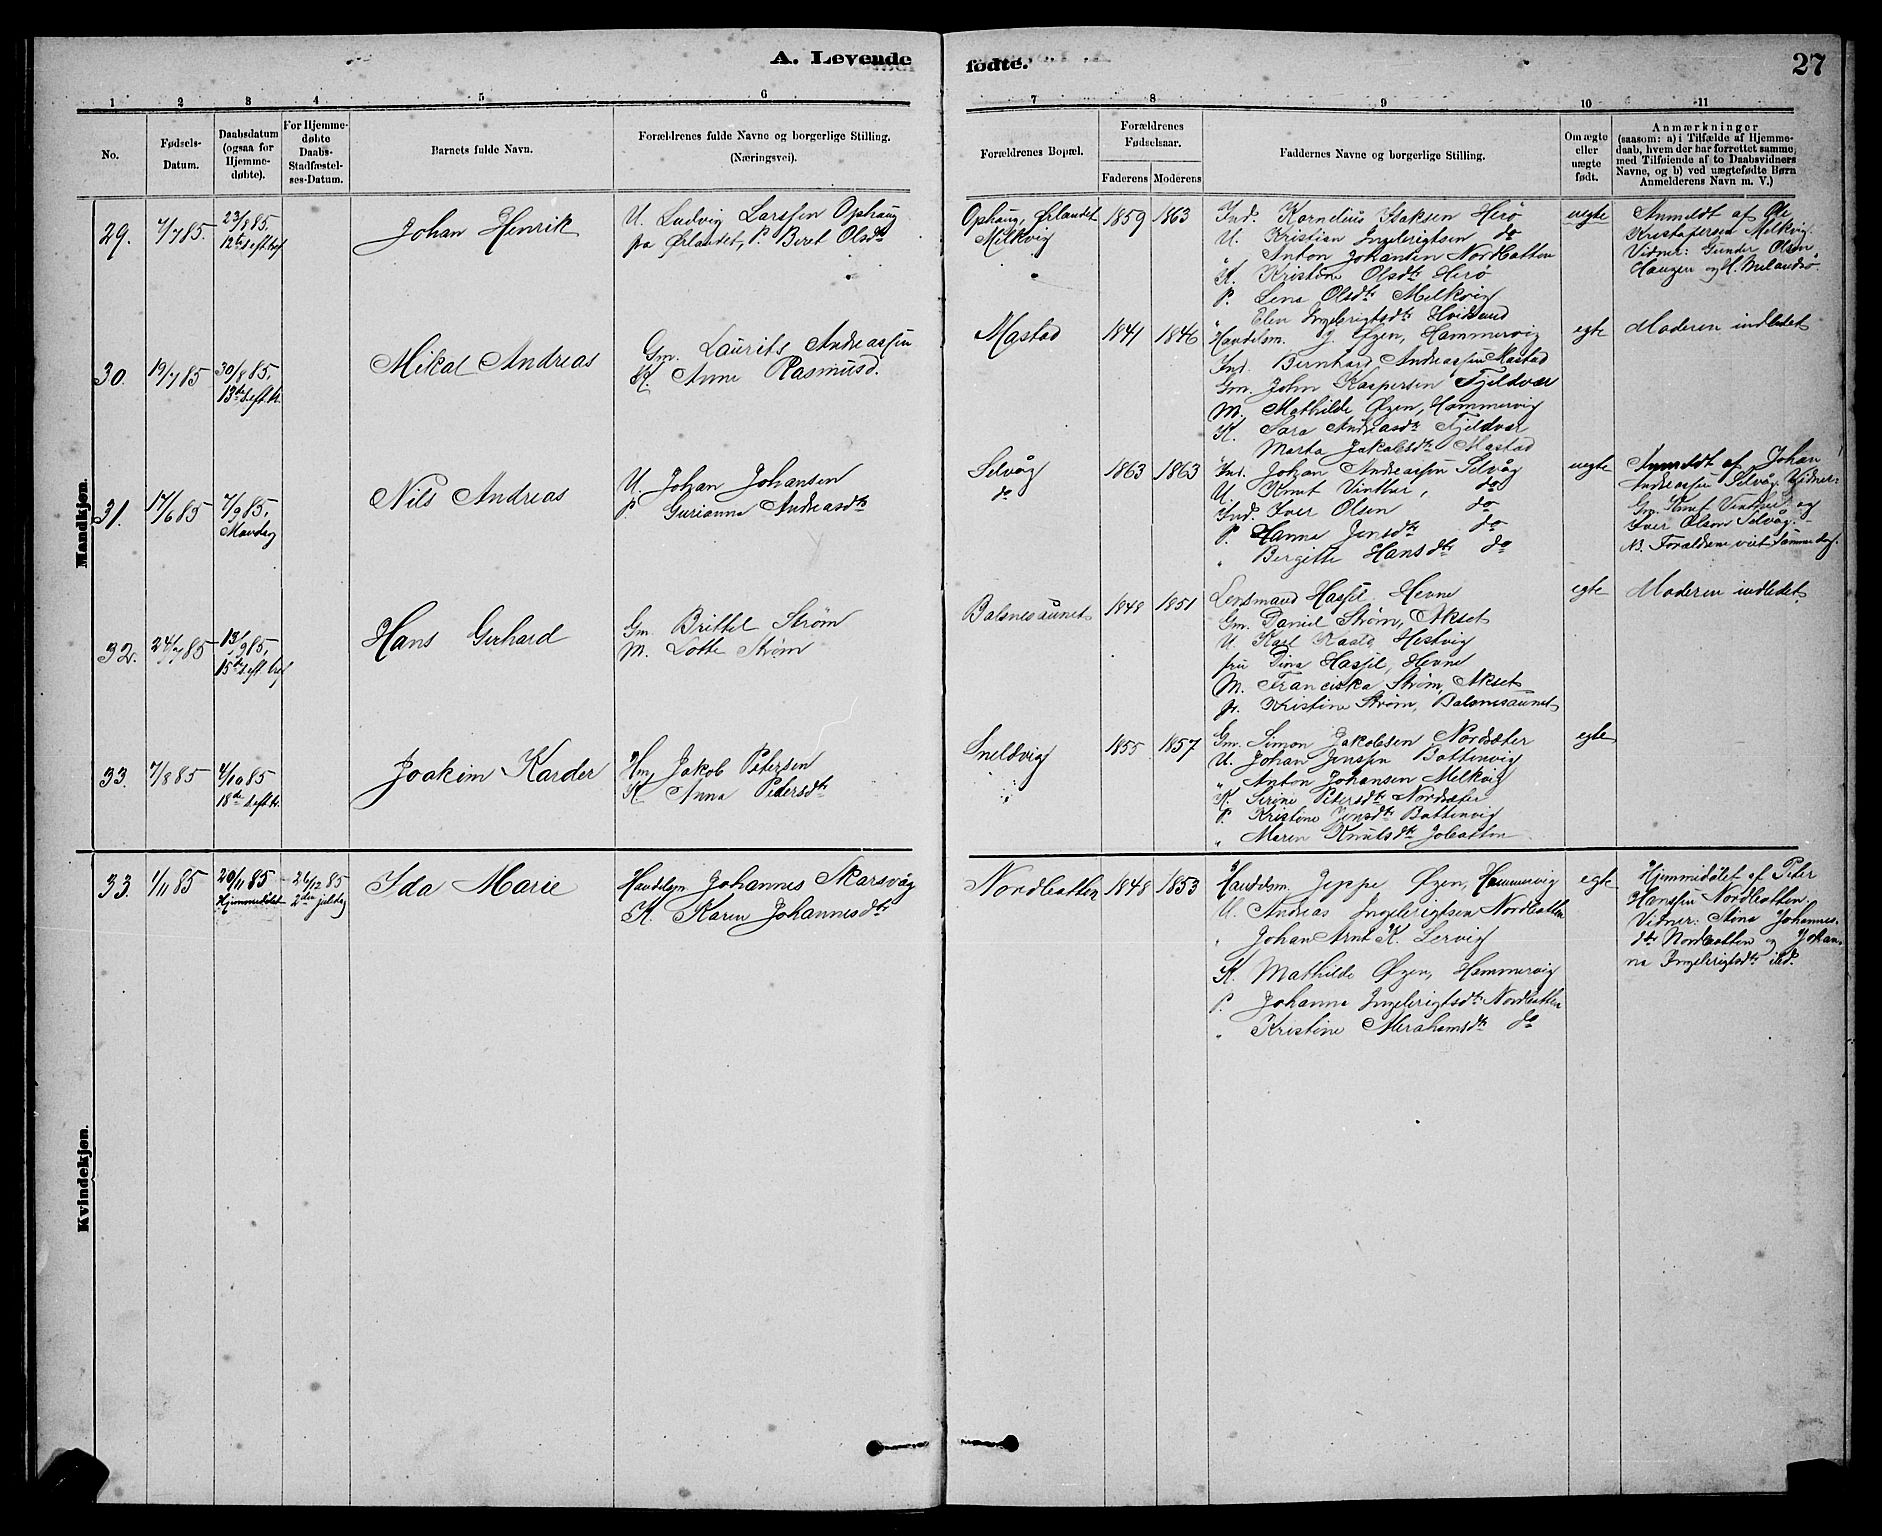 A. Levende fødte. 27
1 2 3 4 5 6 7 8 9 10 11
No.
Fødsels-
Datum.
Daabsdatum
(ogsaa for
Hjemme-
døbte).
For Hjemme-
døbte
Daabs-
Stadfæstel-
ses-Datum.
Barnets fulde Navn.
Forældrenes fulde Navne og borgerlige Stilling.
(Næringsvei).
Forældrenes Bopæl.
Forældrenes
Fødselsaar.
Faderens Moderens
Faddernes Navne og borgerlige Stilling.
Om ægte
eller
uægte
født.
Anmærkninger
(saasom: a) i Tilfælde af Hjemme-
daab, hvem der har forrettet samme,
med Tilføiende af to Daabsvidners
Navne, og b) ved uægtefødte Børn
Anmelderens Navn m. V.)
Mandkjøn.
29. 4/785. 23/885.
12te S eft
Johan Henrik
U. Ludvig Larssen Ophaug
fra Ørlandet, P. Beret Olsdtr
Ophaug, Ørlandet
Melkvig
1859 1863
Ind. Kornelius Isaksen Herø
U. Kristian Ingebrigtsen do
" Anton Johansen Nordbotten
K. Kristine Olsdtr Herø
P. Lena Olsdtr Melkvig
" Elen Ingebrigtsdtr Hvidsand
uegte
Anmeldt af Ole
Kristofersen Melkvig.
Vidner: Gunder Olsen
Haugen og H. Melandsø.
30. 19/785 30/885.
13de S eft. tr.
Mikal Andreas
Gm. Laurits Andreassen
K. Anne Rasmusd.
Mastad
1841 1846
Handelsm. J. Øzen, Hammervig
Ind. Bernhard Andreassen Mastad
Gm. John Kaspersen Fjeldvær
M. Mathilde Øzen, Hammervig
K. Sara Andreasdtr Fjeldvær
Marta Jakobsdtr Mastad
egte
Moderen indledet
31. 17/685 7/985,
Mandag
Nils Andreas
U. Johan Johansen
P. Gurianna Andreasdtr
Selvåg
do
1863 1863
Ind. Johan Andreassen Selvåg
U. Knut Vinther, do
Ind. Iver Olsen do
P. Hanna Jensdtr do
" Bergitte Hansdtr do
uegte
Anmeldt af Johan
Andreassen Selvåg. Vidner:
Gm. Knut Vinther og
Iver Olsen Selvåg.
NB. Forældrene viet samme dag.
32. 24/785 13/985,
15de S eft
Hans Gerhard
Gm. Brittel Strøm
M. Lotte Strøm
Balsnesaunet
1848 1851
Lensmand Hassel, Hevne
Gm. Daniel Strøm, Akset
U. Karl Hestvig
fru Dina Hassel, Hevne
M. Franciska Strøm, Akset
Kristine Strøm, Balsnesaunet
egte
Moderen indledet.
33. 7/885 4/1085
18de S eft tr.
Joakim Karder
Hm Jakob Petersen
K Anna Pedersdtr
Sneldvig
1855 1857
Gm. Simon Jakobsen Nordsæter
U. Johan Jensen Bottenvig
" Anton Johansen Melkvig
K. Serine Petersdtr Nordsæter
P. Kristine Jensdtr Bottenvig
" Maren Knutsdtr Jobotten
egte
Kvindekjøn.
33. 1/1185 20/1185
Hjemmedøbt
26/1285
2den juledag
Ida Marie
Handelsm Johannes Skarsvåg
K. Karen Johannesdtr
Nordbotten
1848 1853
Handelsm. Jeppe Øzen, Hammervig
U. Andreas Ingebrigtsen Nordbotten
" Johan Arnt K. Servig
K. Mathilde Øzen, Hammervig
P. Johanna Ingebrigtsdtr Nordbotten
" Kristine Abrahamsdtr do
egte
Hjemmedøbt af Peter
Hanssen Nordbotten.
Vidner: Anna Johannes-
dtr Nordbotten og Johan-
na Ingebrigtsdtr ibd.